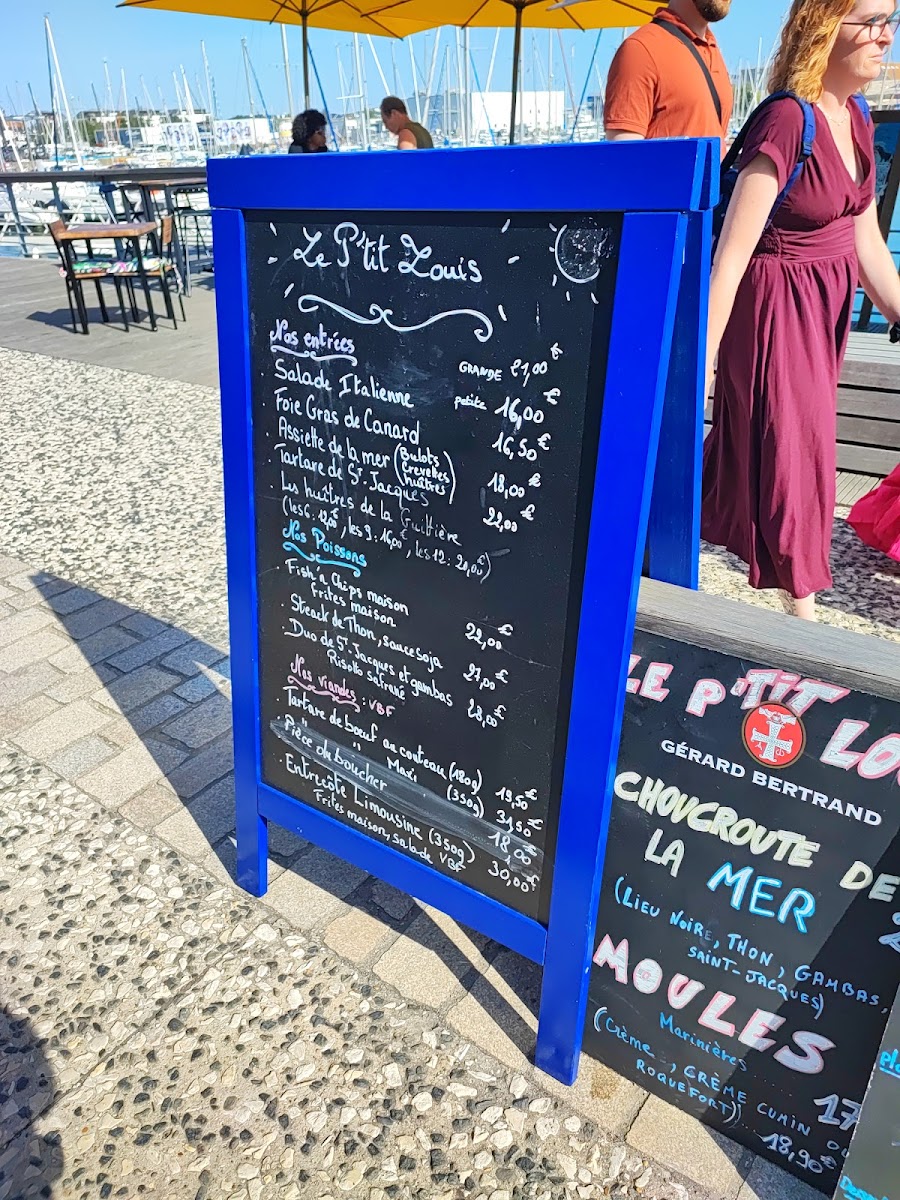 Le P'tit Louis
Nos entrées
GRANDE 21,00€
Salade Italienne petite 16,00€
Foie Gras de Canard 16,50€
Assiette de la mer (Bulots crevettes huîtres) 18,00€
Tartare de St. Jacques 22,00€
Les huîtres de la Guittière
(les 6: 12,00€, les 9: 16,00€, les 12: 20,00€)
Nos Poissons
Fish'n Chips maison
frites maison 22,00€
Steack de Thon, sauce soja 21,00€
Duo de St. Jacques et gambas
Risotto safrané 28,00€
Nos viandes: VBF
Tartare de bœuf au couteau (180g) 19,50€
" " Maxi (350g) 31,50€
Pièce du boucher 18,00€
Entrecôte Limousine (350g) 30,00€
Frites maison, salade VBF
LE P'TIT LO
GÉRARD BERTRAND
CHOUCROUTE DE
LA MER
(LIEU NOIRE, THON, GAMBAS,
SAINT-JACQUES)
MOULES
Marinières 17
(Crème, CRÈME CUMIN OU
ROQUEFORT) 18,90